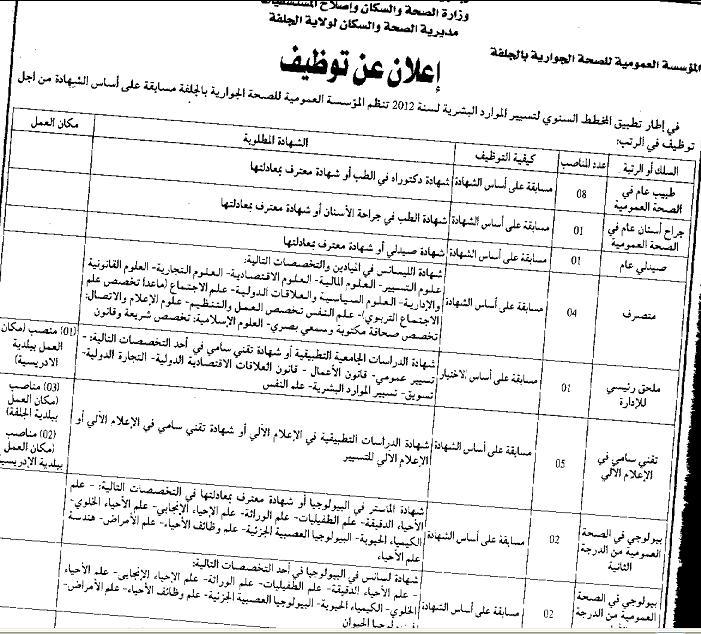 وزارة الصحة والسكان وإصلاح المستشفيات
مديرية الصحة والسكان لولاية الجلفة
المؤسسة العمومية للصحة الجوارية بالجلفة
إعلان عن توظيف
في إطار تطبيق المخطط السنوي لتسيير الموارد البشرية لسنة 2012 تنظم المؤسسة العمومية للصحة الجوارية بالجلفة مسابقة على أساس الشهادة من اجل
توظيف في الرتب:
السلك أو الرتبة
عدد المناصب
كيفية التوظيف
الشهادة المطلوبة
مكان العمل
طبيب عام في
الصحة العمومية
08
مسابقة على أساس الشهادة
شهادة دكتوراه في الطب أو شهادة معترف بمعادلتها
جراح أسنان عام في
الصحة العمومية
01
مسابقة على أساس الشهادة
شهادة الطب في جراحة الأسنان أو شهادة معترف بمعادلتها
صيدلي عام
01
مسابقة على أساس الشهادة
شهادة صيدلي أو شهادة معترف بمعادلتها
متصرف
04
مسابقة على أساس الشهادة
شهادة الليسانس في الميادين والتخصصات التالية:
علوم التسيير- العلوم المالية- العلوم الاقتصادية- العلوم التجارية- العلوم القانونية
والإدارية- العلوم السياسية والعلاقات الدولية- علم الاجتماع (ماعدا تخصص علم
الاجتماع التربوي)- علم النفس تخصص العمل والتنظيم- علوم الإعلام والاتصال:
تخصص صحافة مكتوبة وسمعي بصري- العلوم الإسلامية: تخصص شريعة وقانون
ملحق رئيسي
للإدارة
01
مسابقة على أساس الاختبار
شهادة الدراسات الجامعية التطبيقية أو شهادة تقني سامي في أحد التخصصات التالية: -
تسيير عمومي- قانون الأعمال - قانون العلاقات الاقتصادية الدولية- التجارة الدولية-
تسويق- تسيير الموارد البشرية- علم النفس
(01) منصب (مكان
العمل ببلدية
الادريسية)
تقني سامي في
الإعلام الآلي
05
مسابقة على أساس الشهادة
شهادة الدراسات التطبيقية في الإعلام الآلي أو شهادة تقني سامي في الإعلام الآلي أو
الإعلام الآلي للتسيير
(03) مناصب
(مكان العمل
ببلدية الجلفة)
(02) مناصب
(مكان العمل
ببلدية الإدريسية
بيولوجي في الصحة
العمومية من الدرجة
الثانية
02
مسابقة على أساس الشهادة
شهادة الماستر في البيولوجيا أو شهادة معترف بمعادلتها في التخصصات التالية: - علم
الأحياء الدقيقة- علم الطفيليات- علم الوراثة- علم الإحياء الإنجابي- علم الأحياء الخلوي-
الكيمياء الحيوية- البيولوجيا العصبية الجزئية- علم وظائف الأحياء- علم الأمراض- هندسة
علم الأحياء
بيولوجي في الصحة
العمومية من الدرجة
02
مسابقة على أساس الشهادة
شهادة لسانس في البيولوجيا في أحد التخصصات التالية:
- علم الأحياء الدقيقة- علم الطفيليات- علم الوراثة- علم الإحياء الإنجابي- علم الأحياء
الخلوي- الكيمياء الحيوية- البيولوجيا العصبية الجزئية- علم وظائف الأحياء- علم الأمراض-